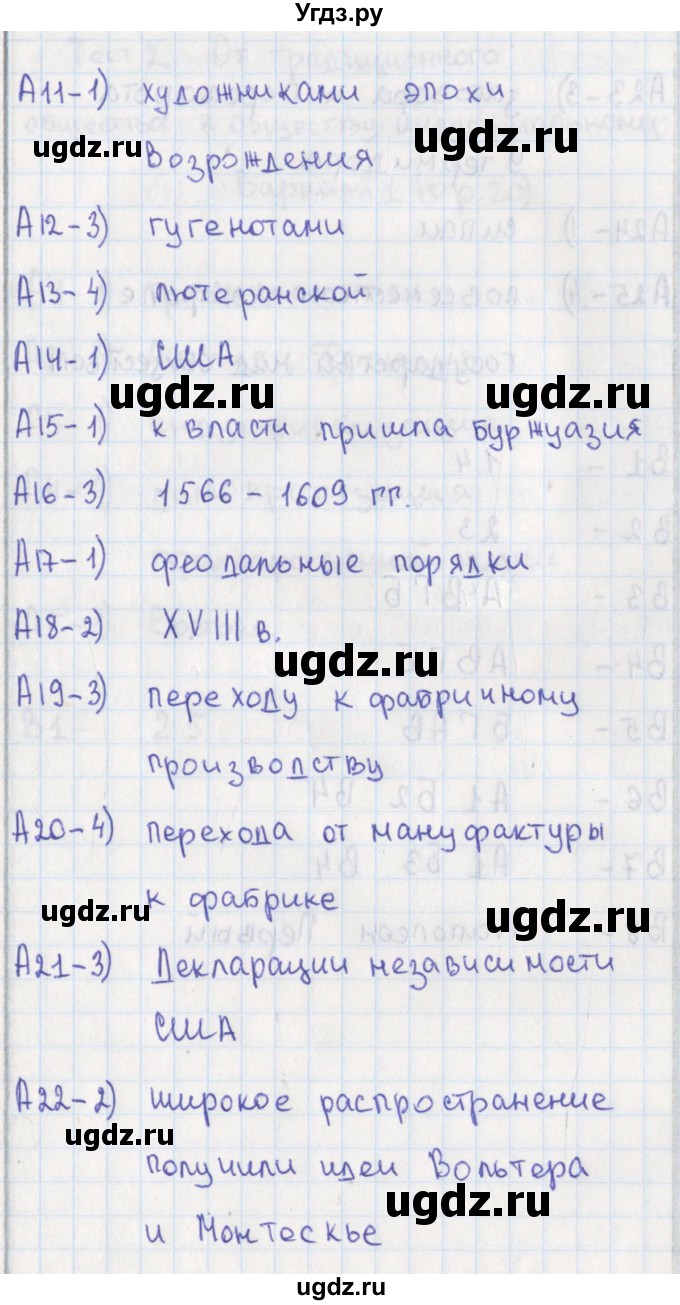 Угдз.ру
А11-1) художниками эпохи
Возрождения
ugdz.ru
А12-3) гугенотами
А13-4) лютеранской
А14-1) США
ugdz.ru ugdz.ru
А15-1) к власти пришла буржуазия
А16-3) 1566 - 1609 гг.
А17-1) феодальные порядки
А18-2) XVIII в.
ugdz.ru
А19-3) переходу к фабричному
производству
А20-4) перехода от мануфактуры
к фабрике
ugdz.ru ugdz.ru
А21-3) Декларации независимости
США
А22-2) широкое распространение
ugdz.ru
получили идеи Вольтера
ugdz.ru
и Монтескье
ugdz.ru